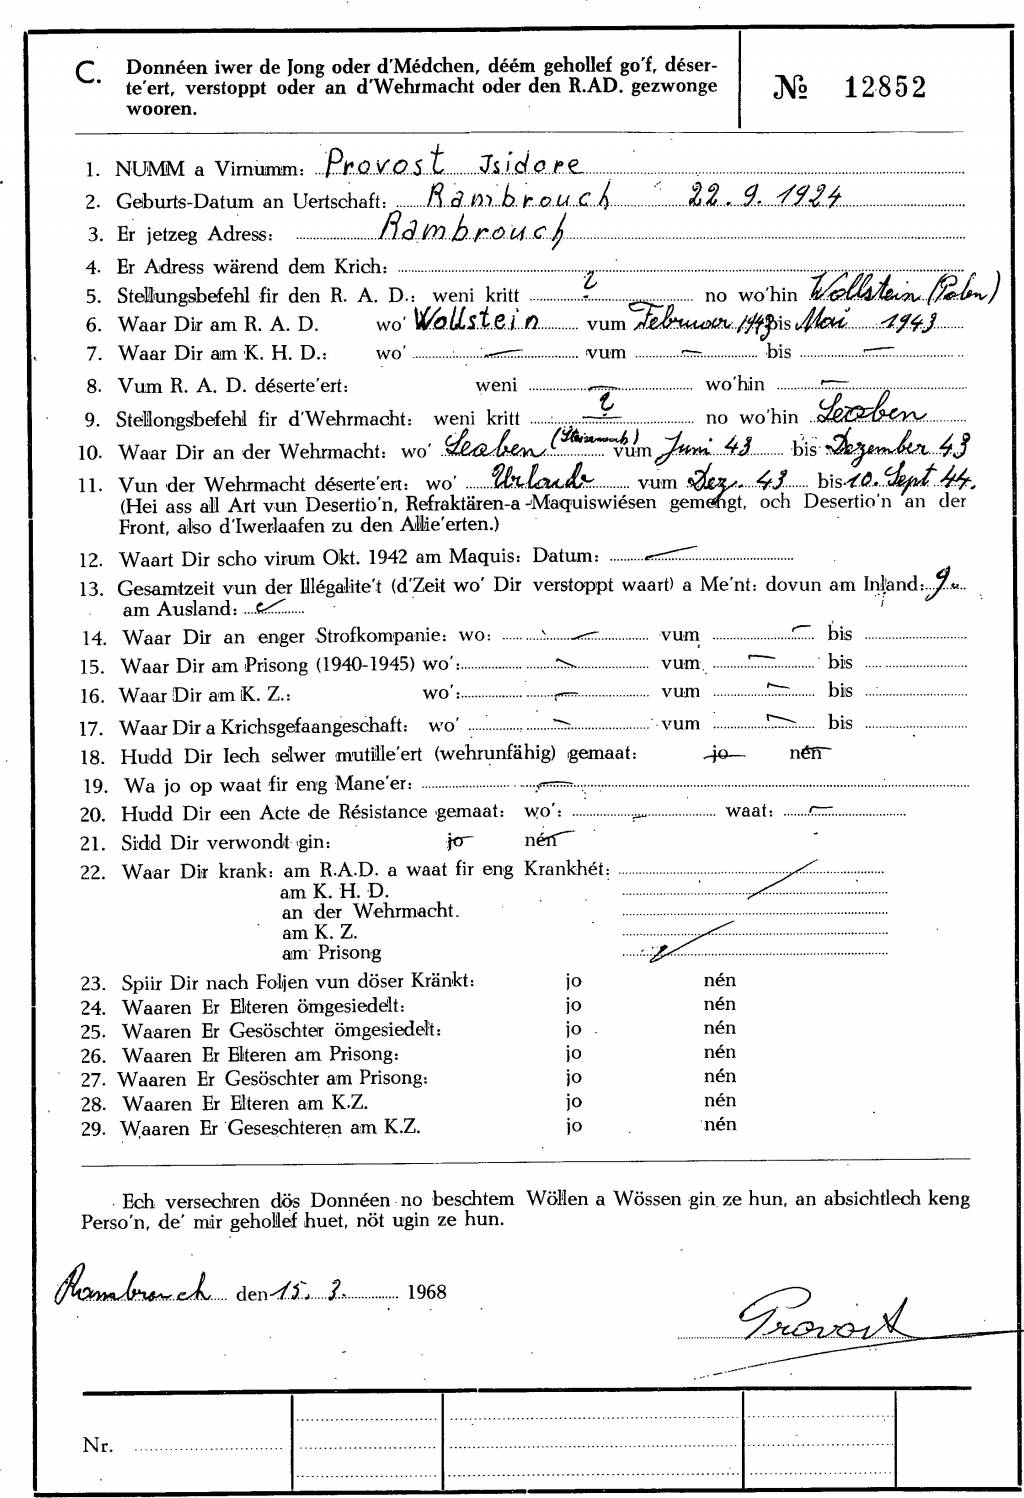 C. Donnéen iwer de Jong oder d'Médchen, déém gehollef go'f, déser-
te'ert, verstoppt oder an d'Wehrmacht oder den R.AD. gezwonge
wooren.
№ 12852
1. NUMM a Virnumm: Provost Isidore
2. Geburts-Datum an Uertschaft: Rambrouch 22.9.1924
3. Er jetzeg Adress: Rambrouch
4. Er Adress wärend dem Krich:
5. Stellungsbefehl fir den R. A. D.: weni kritt ? no wo'hin Wollstein (Polen)
6. Waar Dir am R. A. D. wo' Wollstein vum Februar 1943 bis Mai 1943
7. Waar Dir am K. H. D.: wo' — vum — bis —
8. Vum R. A. D. déserte'ert: weni — wo'hin —
9. Stellongsbefehl fir d'Wehrmacht: weni kritt ? no wo'hin Leoben
10. Waar Dir an der Wehrmacht: wo' Leoben (Steiermark) vum Juni 43 bis Dezember 43
11. Vun der Wehrmacht déserte'ert: wo' Urlaub vum Dez. 43 bis 10. Sept 44.
(Hei ass all Art vun Desertio'n, Refraktären-a-Maquiswiésen gemengt, och Desertio'n an der
Front, also d'Iwerlaafen zu den Allie'erten.)
12. Waart Dir scho virum Okt. 1942 am Maquis: Datum: —
13. Gesamtzeit vun der Illégalite't (d'Zeit wo' Dir verstoppt waart) a Me'nt: dovun am Inland: 9
am Ausland:
14. Waar Dir an enger Strofkompanie: wo: — vum — bis
15. Waar Dir am Prisong (1940-1945) wo': — vum — bis
16. Waar Dir am K. Z.: wo': — vum — bis
17. Waar Dir a Krichsgefaangeschaft: wo' — vum — bis
18. Hudd Dir Iech selwer mutille'ert (wehrunfähig) gemaat: jo nén
19. Wa jo op waat fir eng Mane'er: —
20. Hudd Dir een Acte de Résistance gemaat: wo': — waat: —
21. Sidd Dir verwondt gin: jo nén
22. Waar Dir krank: am R.A.D. a waat fir eng Krankhét:
am K. H. D.
an der Wehrmacht.
am K. Z.
am Prisong
23. Spiir Dir nach Foljen vun döser Kränkt: jo nén
24. Waaren Er Elteren ömgesiedelt: jo nén
25. Waaren Er Gesöschter ömgesiedelt: jo nén
26. Waaren Er Elteren am Prisong: jo nén
27. Waaren Er Gesöschter am Prisong: jo nén
28. Waaren Er Elteren am K.Z. jo nén
29. Waaren Er Geseschteren am K.Z. jo nén
Ech versechren dös Donnéen no beschtem Wöllen a Wössen gin ze hun, an absichtlech keng
Perso'n, de' mir gehollef huet, nöt ugin ze hun.
Rambrouch den 15. 3. 1968
Provost
Nr.